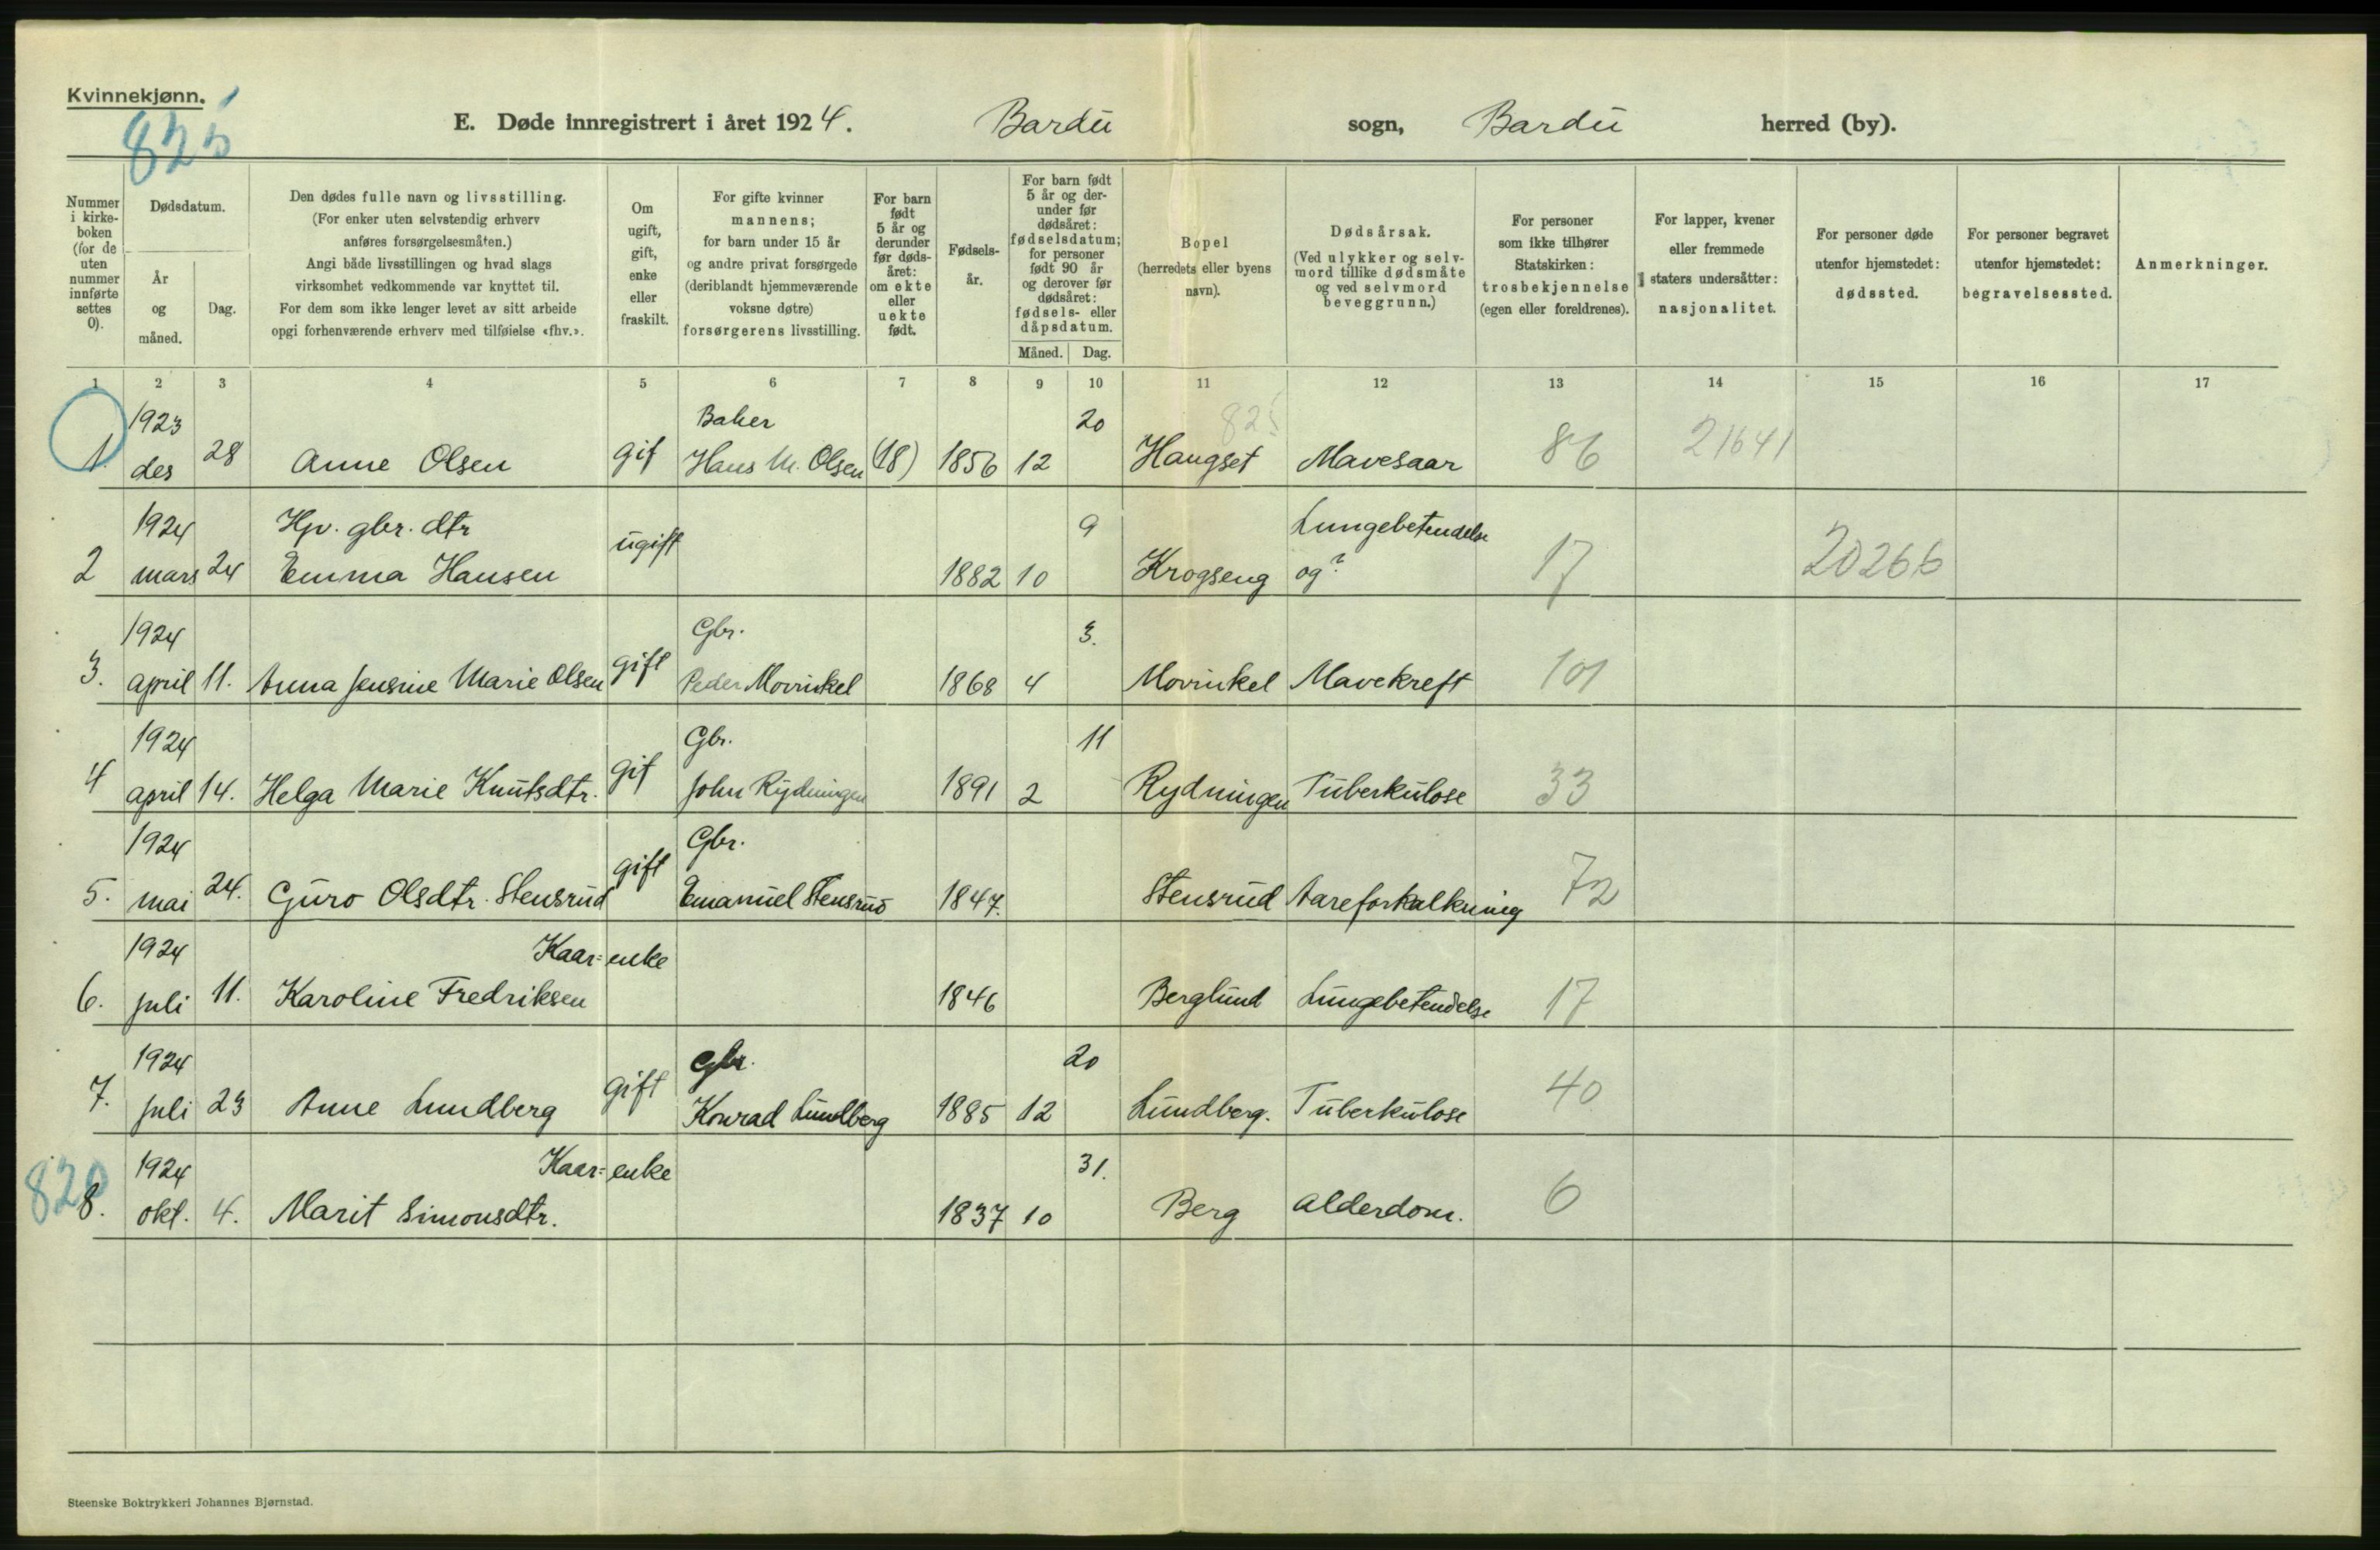 Kvinnekjønn.
825
E. Døde innregistrert i året 1924. Bardu sogn, Bardu herred (by).
Nummer i kirke-boken (for de uten nummer innførte settes 0).
Dødsdatum.
År og måned.
Dag.
Den dødes fulle navn og livsstilling.
(For enker uten selvstendig erhverv
anføres forsørgelsesmåten.)
Angi både livsstillingen og hvad slags
virksomhet vedkommende var knyttet til.
For dem som ikke lenger levet av sitt arbeide
opgi forhenværende erhverv med tilføielse «fhv.».
Om ugift, gift, enke eller fraskilt.
For gifte kvinner
mannens;
for barn under 15 år
og andre privat forsørgede
(deriblandt hjemmeværende
voksne døtre)
forsørgerens livsstilling.
For barn født 5 år og derunder før døds-året: om ekte eller uekte født.
Fødsels-år.
For barn født 5 år og der-under før dødsåret: fødselsdatum; for personer født 90 år og derover før dødsåret: fødsels- eller dåpsdatum.
Måned. Dag.
Bopel
(herredets eller byens
navn).
Dødsårsak.
(Ved ulykker og selv-
mord tillike dødsmåte
og ved selvmord
beveggrunn.)
For personer
som ikke tilhører
Statskirken:
trosbekjennelse
(egen eller foreldrenes).
For lapper, kvener
eller fremmede
staters undersåtter:
nasjonalitet.
For personer døde
utenfor hjemstedet:
dødssted.
For personer begravet
utenfor hjemstedet:
begravelsessted.
Anmerkninger.
1 2 3 4 5 6 7 8 9 10 11 12 13 14 15 16 17
1923 Baker 20 825
1. des 28 Anne Olsen gif Hans M. Olsen (18) 1856 12 Haugset Mavesaar 86 21641
1924 Hjv. gbr. dtr 9 Lungebetendelse
2 mars 24 Emma Hansen ugift 1882 10 Krogseng og? 17 20266
1924 Gbr. 3.
3. april 11. Anna Jensine Marie Olsen gift Peder Movinkel 1868 4 Movinkel Mavekreft 101
1924 Gbr. 11
4 april 14. Helga Marie Knutsdtr. gif John Rydningen 1891 2 Rydningen Tuberkulose 33
1924 Gbr.
5. mai 24. Guro Olsdtr. Stensrud gift Emanuel Stensrud 1847. Stensrud Aareforkalkning 72
1924 Kaar= enke
6. juli 11. Karoline Fredriksen 1846 Berglund Lungebetendelse 17
1924 Gbr. 20
7. juli 23 Anne Lundberg gift Konrad Lundberg 1885 12 Lundberg. Tuberkulose 40
1924 Kaar= enke 31.
8. okt. 4. Marit Simonsdtr. 1837 10 Berg alderdom. 6
Steenske Boktrykkeri Johannes Bjørnstad.